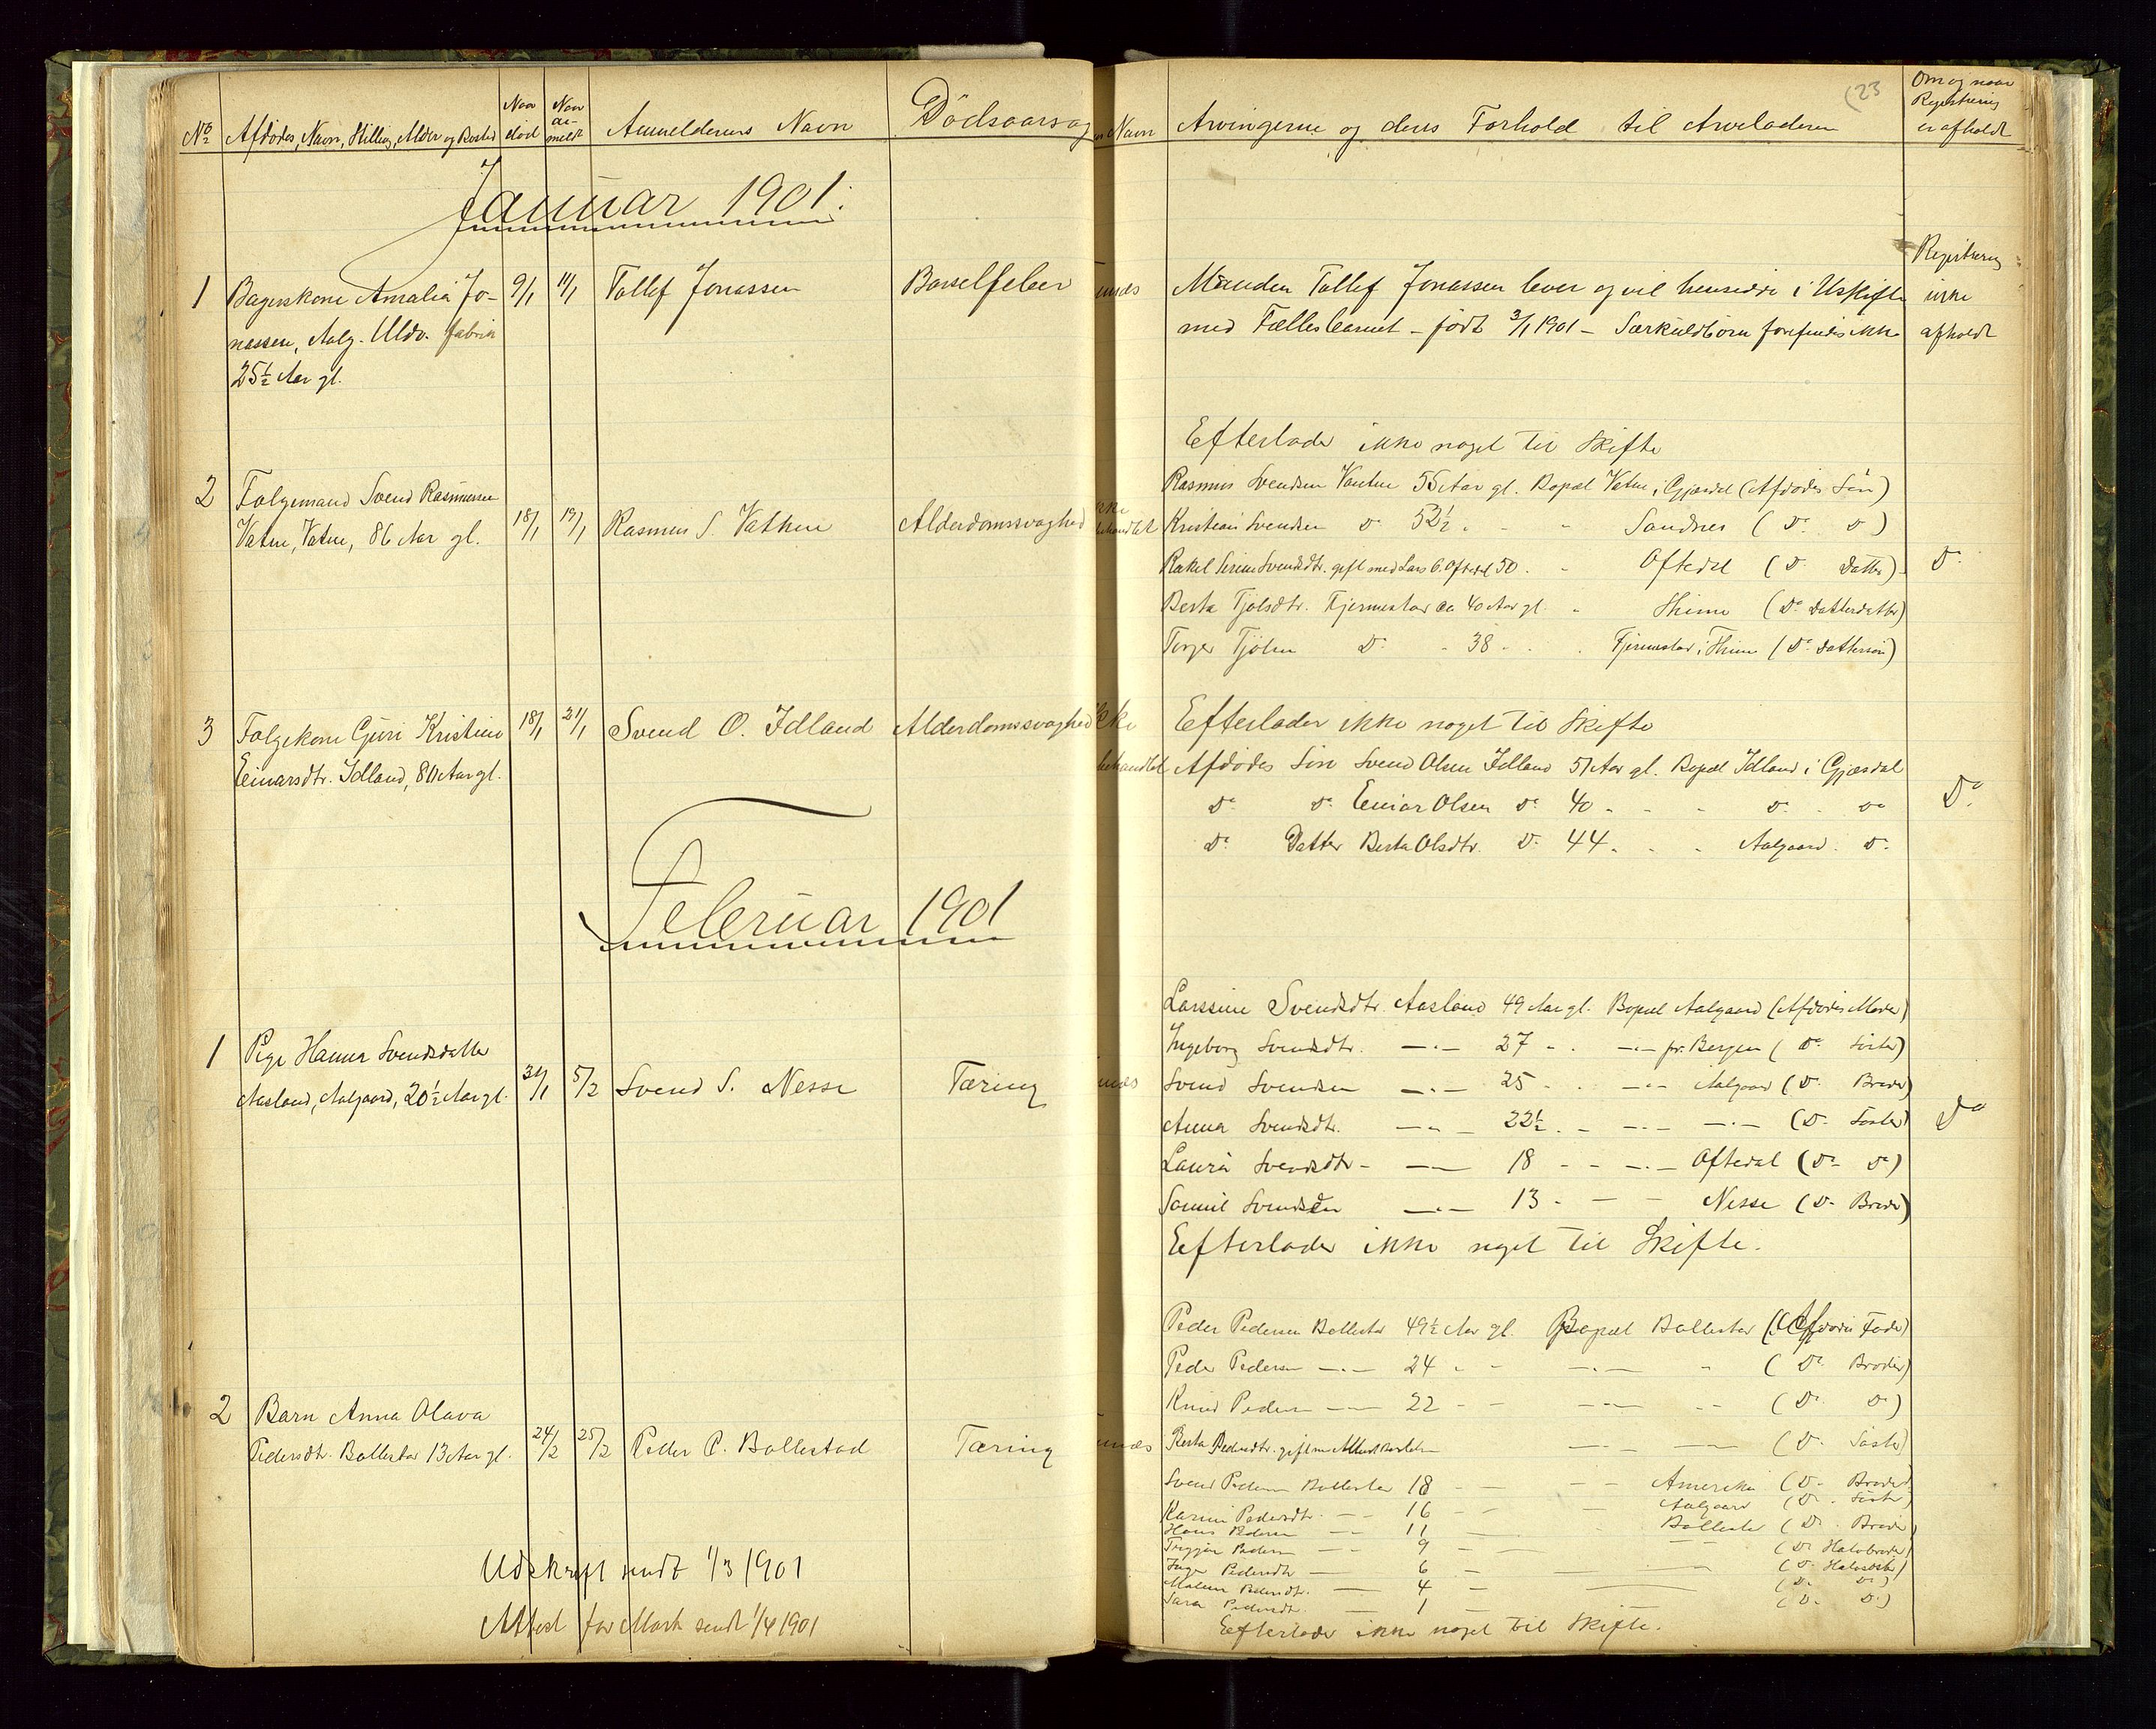 No Afdødes Navn, Stilling, Alder og Bosted
Naar død
Naar anmeldt
Anmelderens Navn
Dødsaarsag
Navn
Arvingerne og deres Forhold til Arveladeren
(23
Om og naar Registrering er afholdt
Januar 1901.
1 Bagerskone Amalia Jo-
nassen, Aalg. Uldv. fabrik
25½ Aar gl.
9/1
11/1
Tollef Jonassen
Barselfeber
Manden Tollef Jonassen lever og vil hensidde i Uskifte
med Fællesbarnet - født 3/1 1901 - Særkuldbørn forefindes ikke
Registrering
ikke
afholdt
2 Folgemand Svend Rasmussen
Vatne, Vatne, 86 Aar gl.
18/1
19/1
Rasmus S. Vathne
Alderdomssvaghed
ikke
behandlet
Efterlader ikke noget til Skifte
Rasmus Svendsen Vatne 55 Aar gl. Bopæl Vatne i Gjæsdal (Afdødes Søn)
Kristian Svendsen Do 52½ - - Sandnes (Do Do)
Rakel Serine Svendsdtr. gift med Lars O. Oftedal 50 - - Oftedal (Do Datter)
Berta Tjølsdtr. Fjermestad ca 40 Aar gl. - Thime (Do Datterdatter)
Torger Tjølsen Do - 38 - - Fjermestad i Thime (Do Dattersøn)
Do
3 Folgekone Guri Kristine
Einarsdtr. Idland, 80 Aar gl.
18/1
21/1
Svend O. Idland
Alderdomssvaghed
ikke
behandlet
Efterlader ikke noget til Skifte
Afdødes Søn Svend Olsen Idland 51 Aar gl. Bopæl Idland i Gjæsdal
Do Do Einar Olsen Do 40 - - - Do - Do
Do Datter Berta Olsdtr. Do 44 - - - Aalgaard - Do
Do
Februar 1901
1 Pige Hanna Svendsdatter
Aasland, Aalgaard, 20½ Aar gl.
31/1
5/2
Svend S. Nesse
Tæring
Larssine Svendsdtr. Aasland 49 Aar gl. Bopæl Aalgaard (Afdødes Moder)
Ingeborg Svendsdtr. -- 27 - - -- pr. Bergen (Do Søster)
Svend Svendsen -- 25 - - -- Aalgaard (Do Broder)
Anna Svendsdtr. -- 22½ - -- -- (Do Søster)
Laura Svendsdtr - -- 18 - - -- Oftedal (Do Do)
Samuel Svendsen -- 13 - - - Nesse (Do Broder)
Efterlader ikke noget til Skifte.
Do
2 Barn Anna Olava
Pedersdtr. Bollestad 13 Aar gl.
24/2
25/2
Peder P. Bollestad
Tæring
Peder Pedersen Bollestad 49½ Aar gl. Bopæl Bollestad (Afdødes Fader)
Peder Pedersen -- 24 - - -- - (Do Broder)
Knud Pedersen -- 22 - - -- -- (Do Do)
Berta Pedersdtr. gift m -- -- (Do Søster)
Svend Pedersen Bollestad 18 - - - Amerika (Do Broder)
Karine Pedersdtr. -- 16 - - - Aalgaard (Do Søster)
Hans Pedersen -- 11 -- Bollestad (Do Broder)
Pedersen -- 9 - -- -- (Do Halvbroder)
Inger Pedersdtr -- 6 - -- -- (Do Halvsøster)
Malene Pedersdtr. -- 4 - -- (Do Do)
Sara Pedersdtr. -- 1 - -- (Do Do)
Efterlader ikke noget til Skifte.
Udskrift sendt 1/3 1901
Attest for Marts sendt 1/4 1901